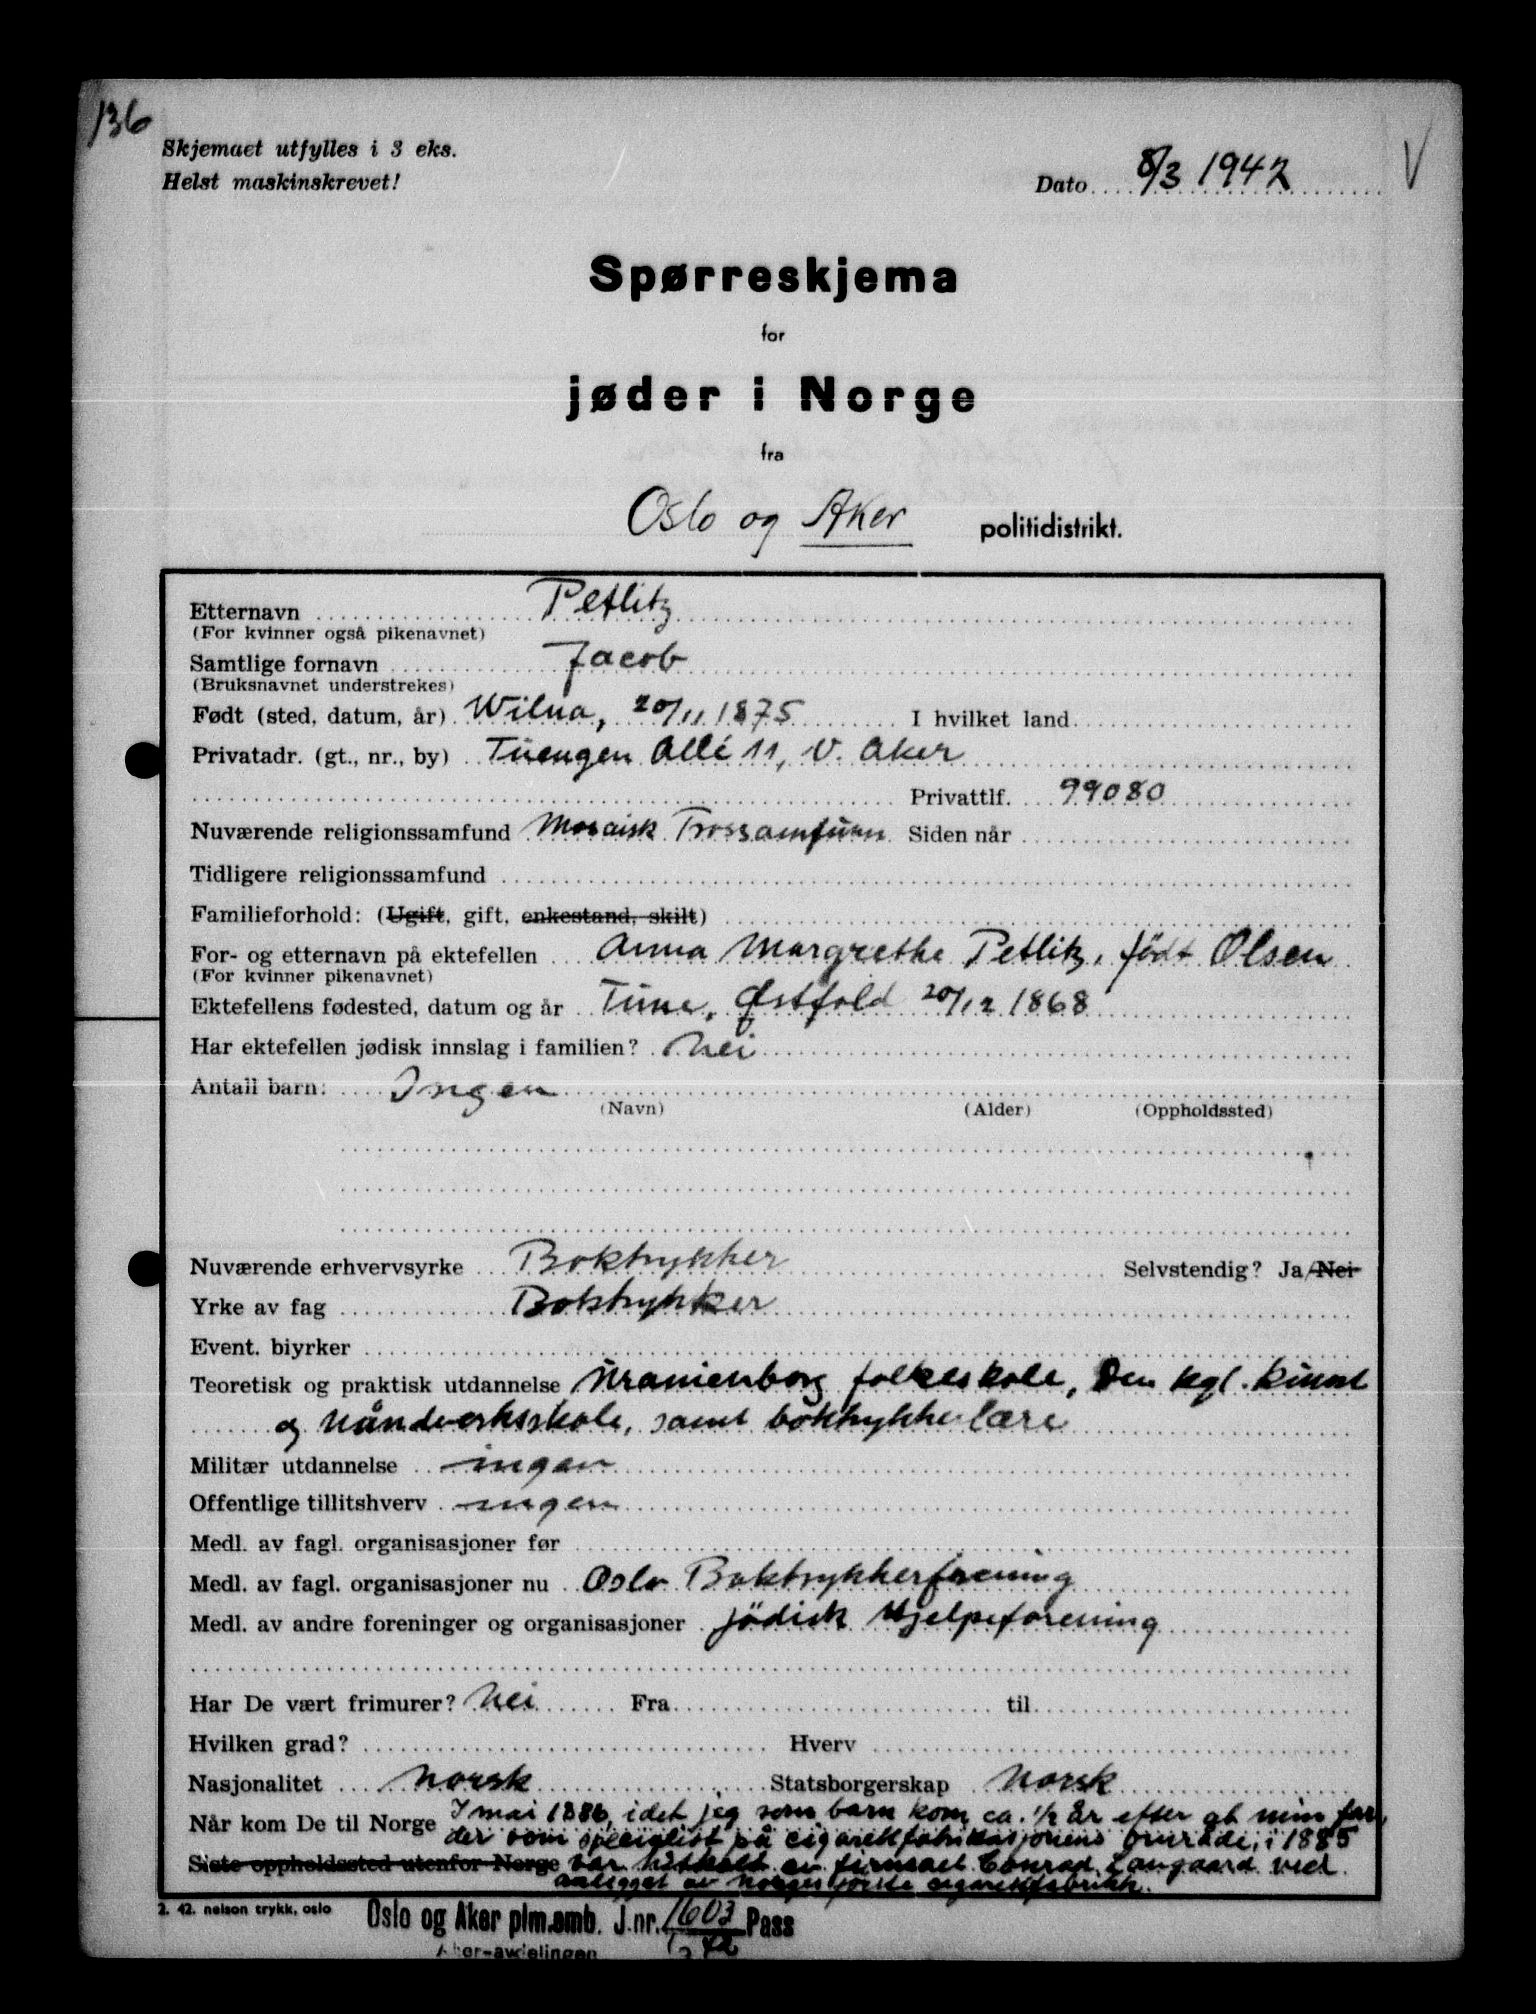 136
Skjemaet utfylles i 3 eks.
Helst maskinskrevet!
Dato 8/3 1942
V
Spørreskjema
for
jøder i Norge
fra
Oslo og Aker politidistrikt.
Etternavn Petlitz
(For kvinner også pikenavnet)
Samtlige fornavn Jacob
(Bruksnavnet understrekes)
Født (sted, datum, år) Wilna, 20/11 1875 I hvilket land
Privatadr. (gt., nr., by) Tuengen Allé 11, V. Aker
Privattlf. 99080
Nuværende religionssamfund Mosaisk Trossamfunn Siden når
Tidligere religionssamfund
Familieforhold: (Ugift, gift, enkestand, skilt)
For- og etternavn på ektefellen Anna Margrethe Petlitz, født Olsen
(For kvinner pikenavnet)
Ektefellens fødested, datum og år Tune, Østfold 20/12 1868
Har ektefellen jødisk innslag i familien? Nei
Antall barn: Ingen
(Navn) (Alder) (Oppholdssted)
Nuværende erhvervsyrke Boktrykker Selvstendig? Ja/Nei
Yrke av fag Boktrykker
Event. biyrker
Teoretisk og praktisk utdannelse Uranienborg folkeskole, Den kgl. kunst
og håndverksskole, samt boktrykkerlære
Militær utdannelse ingen
Offentlige tillitshverv ingen
Medl. av fagl. organisasjoner før
Medl. av fagl. organisasjoner nu Oslo Boktrykkerforening
Medl. av andre foreninger og organisasjoner jødisk Hjelpeforening
Har De vært frimurer? Nei Fra til
Hvilken grad? Hverv
Nasjonalitet Norsk Statsborgerskap Norsk
Når kom De til Norge I mai 1886, idet jeg som barn kom ca. 1/2 år efter at min far,
der som specialist på cigarettfabrikasjonens område, i 1885
Siste oppholdssted utenfor Norge var tilkalt av firmaet Conrad Langaard ved
anlegget av Norges første cigarettfabrikk.
2. 42. nelson trykk, oslo
Oslo og Aker plm.emb. J.nr. 1603 Pass
42
Aker-avdelingen